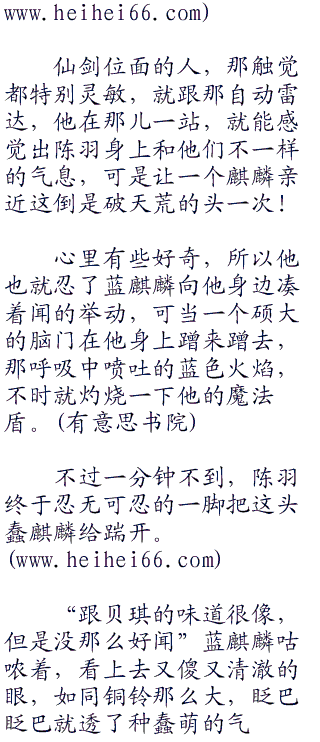 www.heihei66.com)
仙剑位面的人，那触觉
都特别灵敏，就跟那自动雷
达，他在那儿一站，就能感
觉出陈羽身上和他们不一样
的气息，可是让一个麒麟亲
近这倒是破天荒的头一次！
心里有些好奇，所以他
也就忍了蓝麒麟向他身边凑
着闻的举动，可当一个硕大
的脑门在他身上蹭来蹭去，
那呼吸中喷吐的蓝色火焰，
不时就灼烧一下他的魔法
盾。(有意思书院)
不过一分钟不到，陈羽
终于忍无可忍的一脚把这头
蠢麒麟给踹开。
(www.heihei66.com)
“跟贝琪的味道很像，
但是没那么好闻”蓝麒麟咕
哝着，看上去又傻又清澈的
眼，如同铜铃那么大，眨巴
眨巴就透了种蠢萌的气